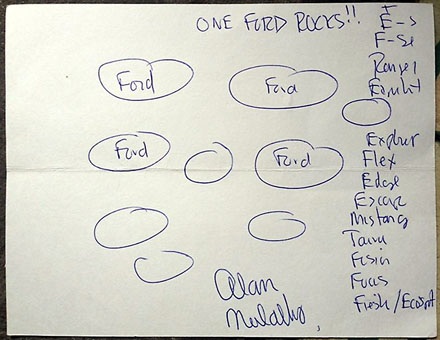 ONE FORD ROCKS!!
F
E-S
F-Se
Ford
Ford
Ranger
Ford
Ford
Explorer
Flex
Edge
Escape
Mustang
Fusion
Focus
Alan
Mulally
Fiesta/EcoSpt